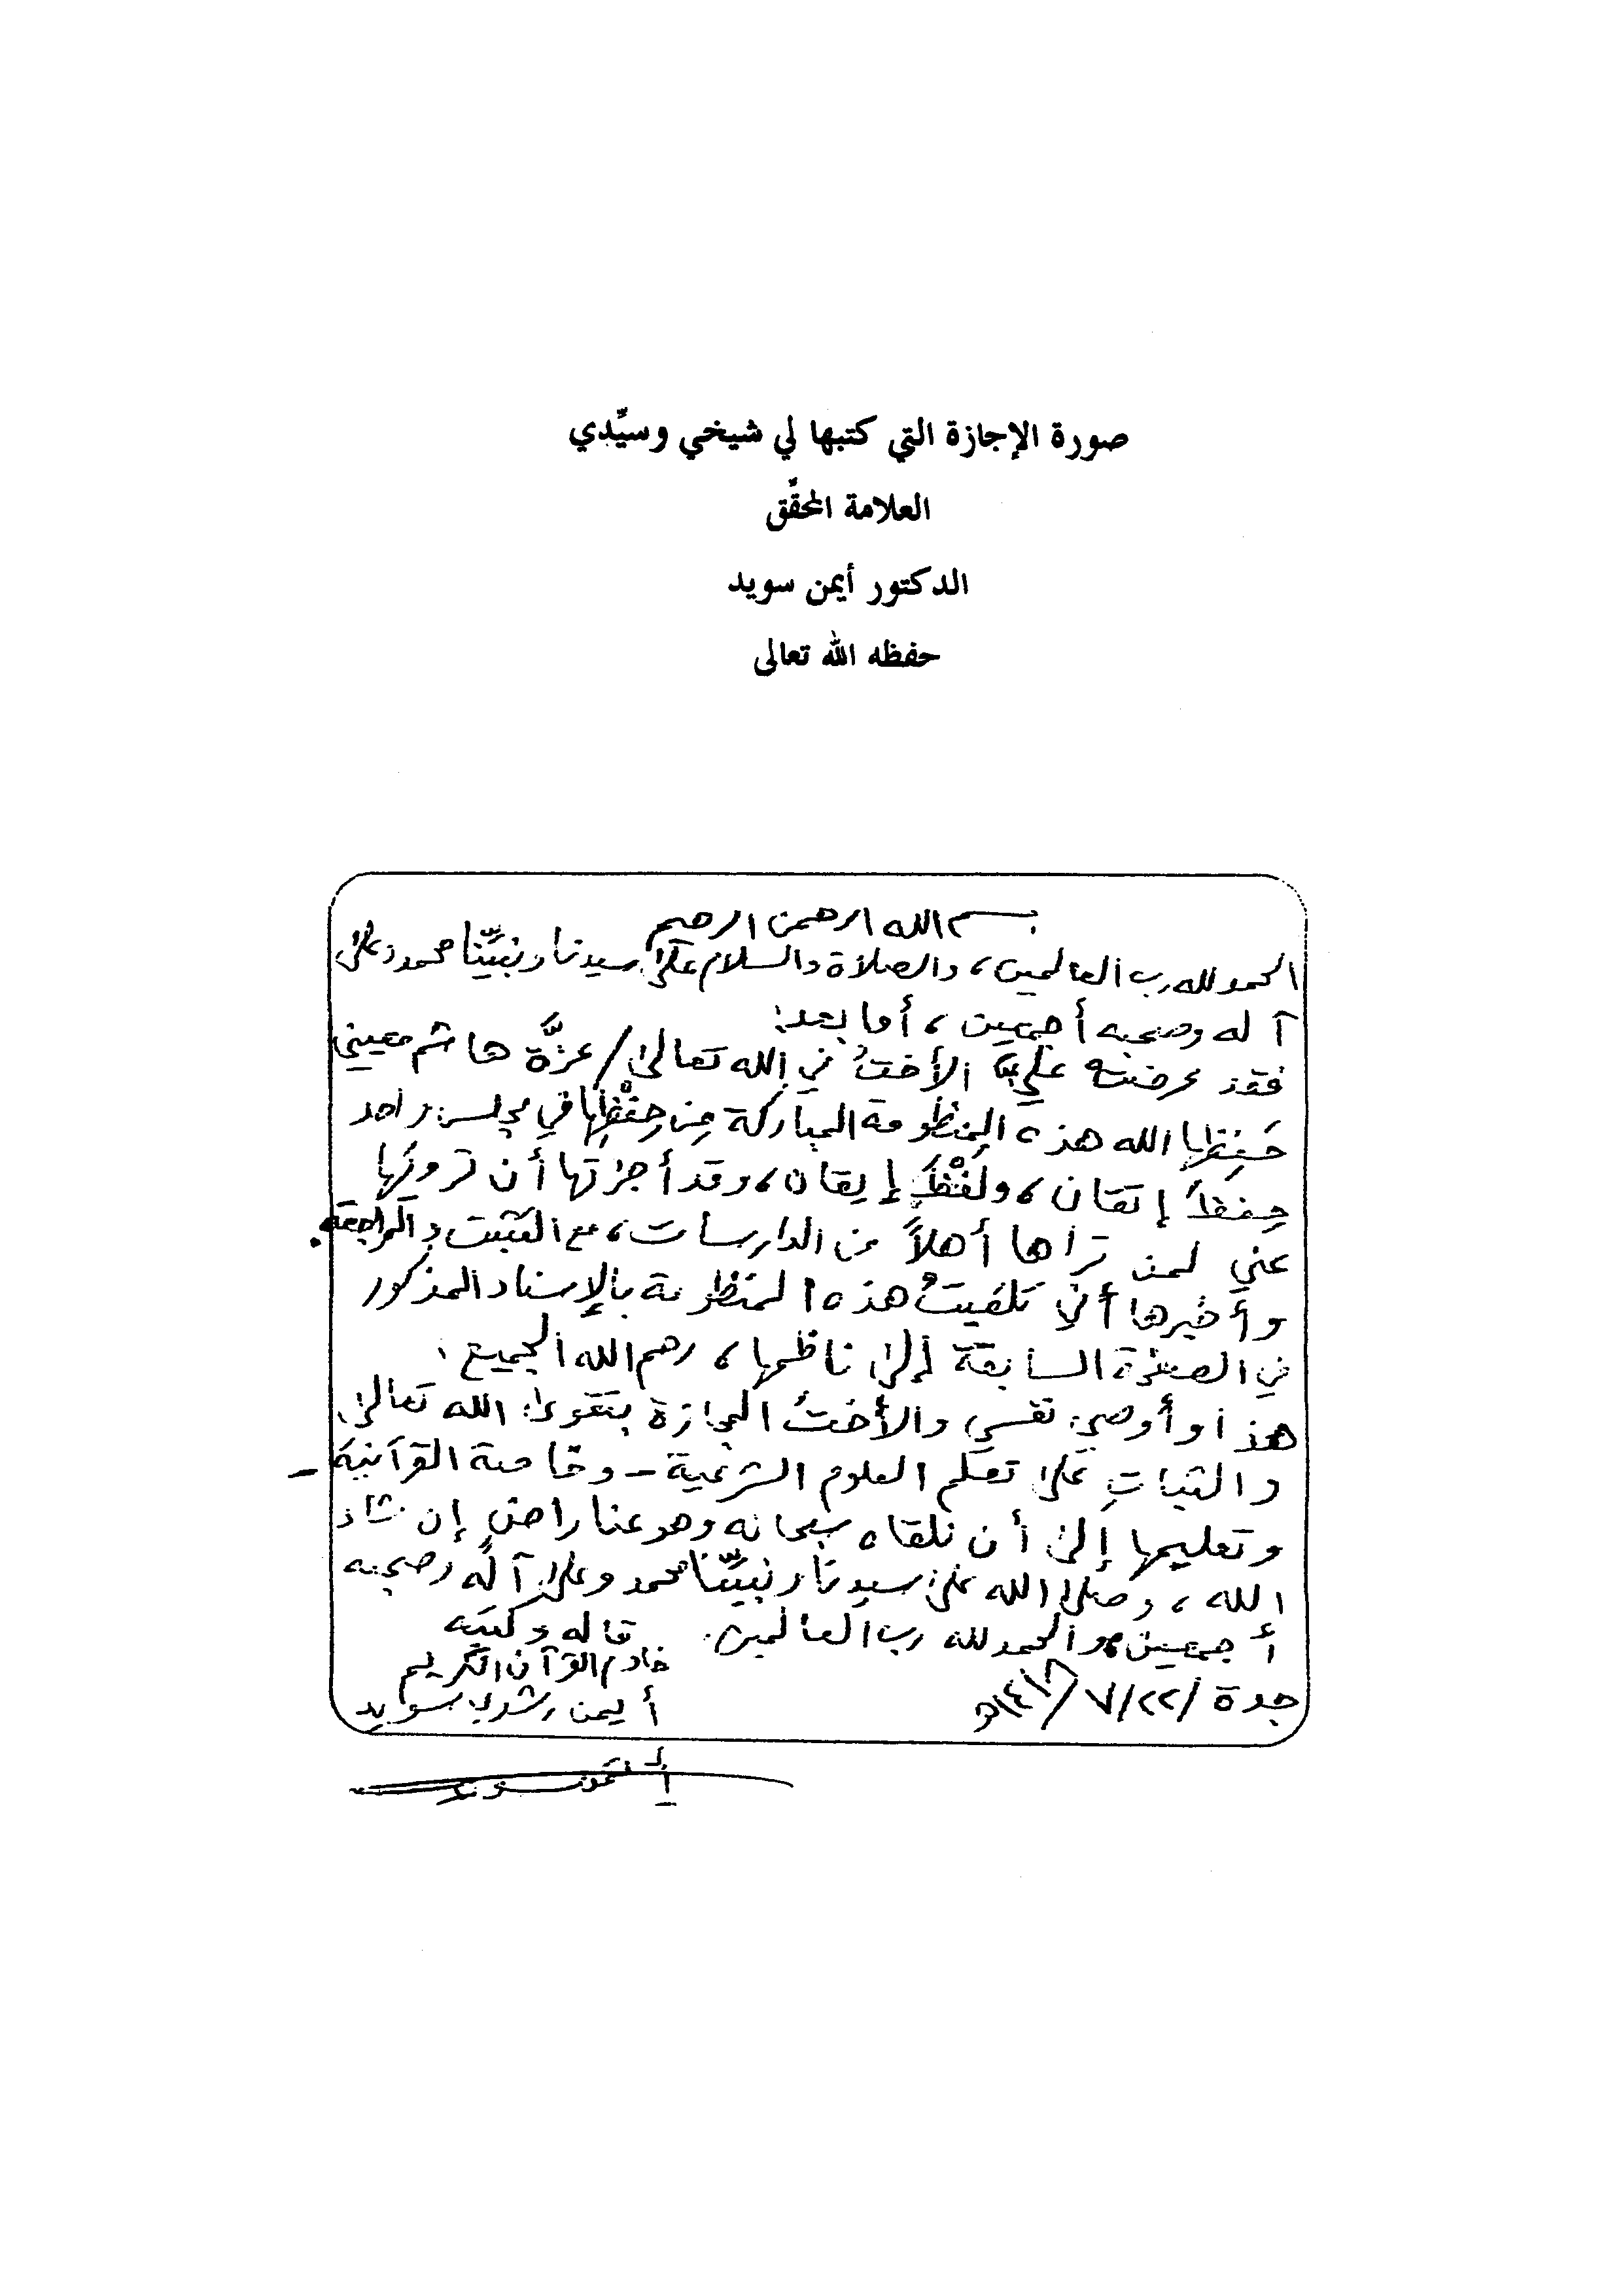 صورة الإجازة التي كتبها لي شيخي وسيِّدي
العلامة المحقَّق
الدكتور أيمن سويد
حفظه الله تعالى
بسم الله الرحمن الرحيم
الحمد لله رب العالمين، والصلاة والسلام على سيدنا ونبيِّنا محمد وعلى
آله وصحبه أجمعين، أما بعد:
فقد عرضت عليَّ الأختُ في الله تعالى / عزَّة هاشم معيني
حَفِظها الله هذه المنظومة المباركة مِن حِفْظِها في مجلس واحد
حِفظَ إتقان، ولَفْظَ إيقان، وقد أجزتها أن ترويَها
عني لمن تراها أهلاً من الدارسات، مع التثبت والمراجعة.
وأخبرها أني تلقيتُ هذه المنظومة بالإسناد المذكور
في الصفحة السابقة إلى ناظمها، رحم الله الجميع.
هذا وأوصي نفسي والأختَ المجازة بتقوى الله تعالى
والثباتِ على تعلم العلوم الشرعية – وخاصة القرآنية –
وتعليمها إلى أن نلقاه سبحانه وهو عنا راضٍ إن شاء
الله، وصلى الله على سيدنا ونبيِّنا محمد وعلى آله وصحبه
أجمعين والحمد لله رب العالمين.
قاله وكتبه
خادم القرآن الكريم
أيمن رشدي سويد
جدة / ٢٢/٧/١٤١٦هـ
أيمن سويد